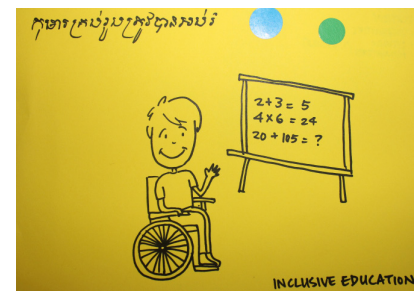 កុមារគ្រប់រូបត្រូវបានអប់រំ
2+3 = 5
4x6 = 24
20 + 105 = ?
INCLUSIVE EDUCATION